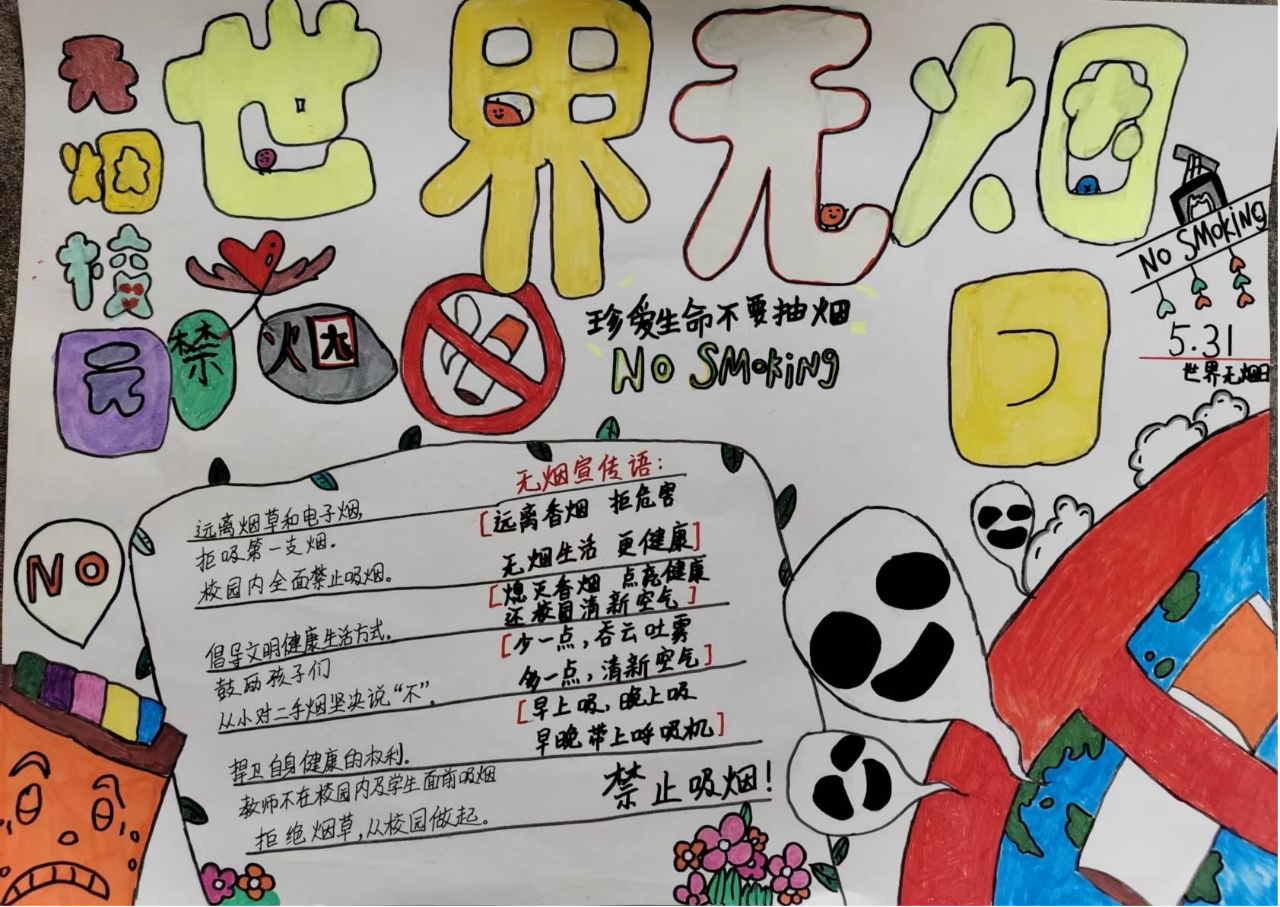 世界无烟日
无
烟
校
园
禁烟
珍爱生命不要抽烟
No SMoKiNg
No SMoKiNg
5.31
世界无烟日
NO
无烟宣传语:
[远离香烟 拒危害
无烟生活 更健康]
[熄灭香烟 点亮健康
还校园清新空气]
[少一点,吞云吐雾
多一点,清新空气]
[早上吸,晚上吸
早晚带上呼吸机]
禁止吸烟!
远离烟草和电子烟,
拒吸第一支烟.
校园内全面禁止吸烟.
倡导文明健康生活方式.
鼓励孩子们
从小对二手烟坚决说“不”.
捍卫自身健康的权利.
教师不在校园内及学生面前吸烟
拒绝烟草,从校园做起.